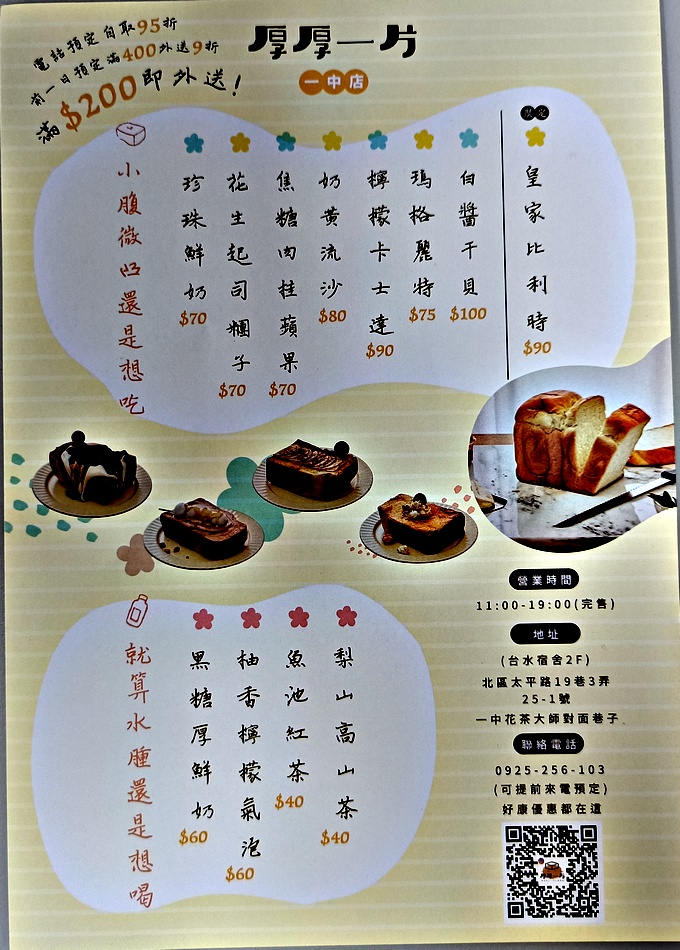 電話預定自取95折
前一日預定滿400外送9折
滿$200即外送！
厚厚一片
一中店
小腹微凸還是想吃
珍珠鮮奶
$70
花生起司糰子
$70
焦糖肉桂蘋果
$70
奶黃流沙
$80
檸檬卡士達
$90
瑪格麗特
$75
白醬干貝
$100
限定
皇家比利時
$90
就算水腫還是想喝
黑糖厚鮮奶
$60
柚香檸檬氣泡
$60
魚池紅茶
$40
梨山高山茶
$40
營業時間
11:00-19:00(完售)
地址
(台水宿舍2F)
北區太平路19巷3弄
25-1號
一中花茶大師對面巷子
聯絡電話
0925-256-103
(可提前來電預定)
好康優惠都在這